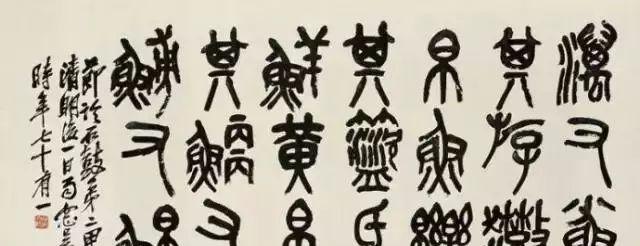 澫又
其斿趩
帛魚皪
其籃氐
鮮黃帛
其鯾又
又
節臨石鼓弟二甲
清明後一日雨窗
時年七十有一